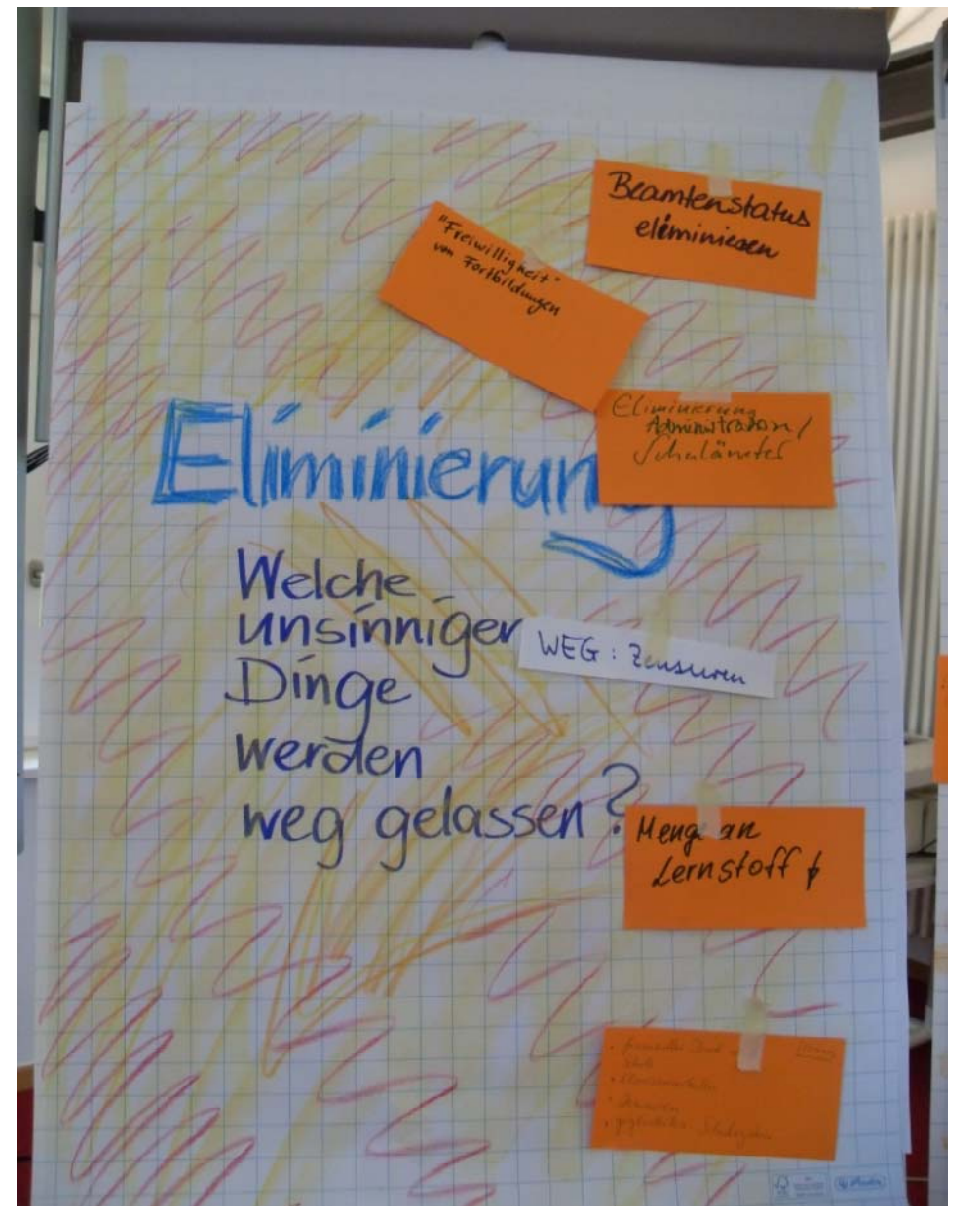 Beamtenstatus
eliminieren
"Freiwilligkeit"
von Fortbildungen
Eliminierung
Administration/
Schulämter
Eliminierung
Welche
unsinnigen
Dinge
werden
weg gelassen?
WEG: Zensuren
Menge an
Lernstoff